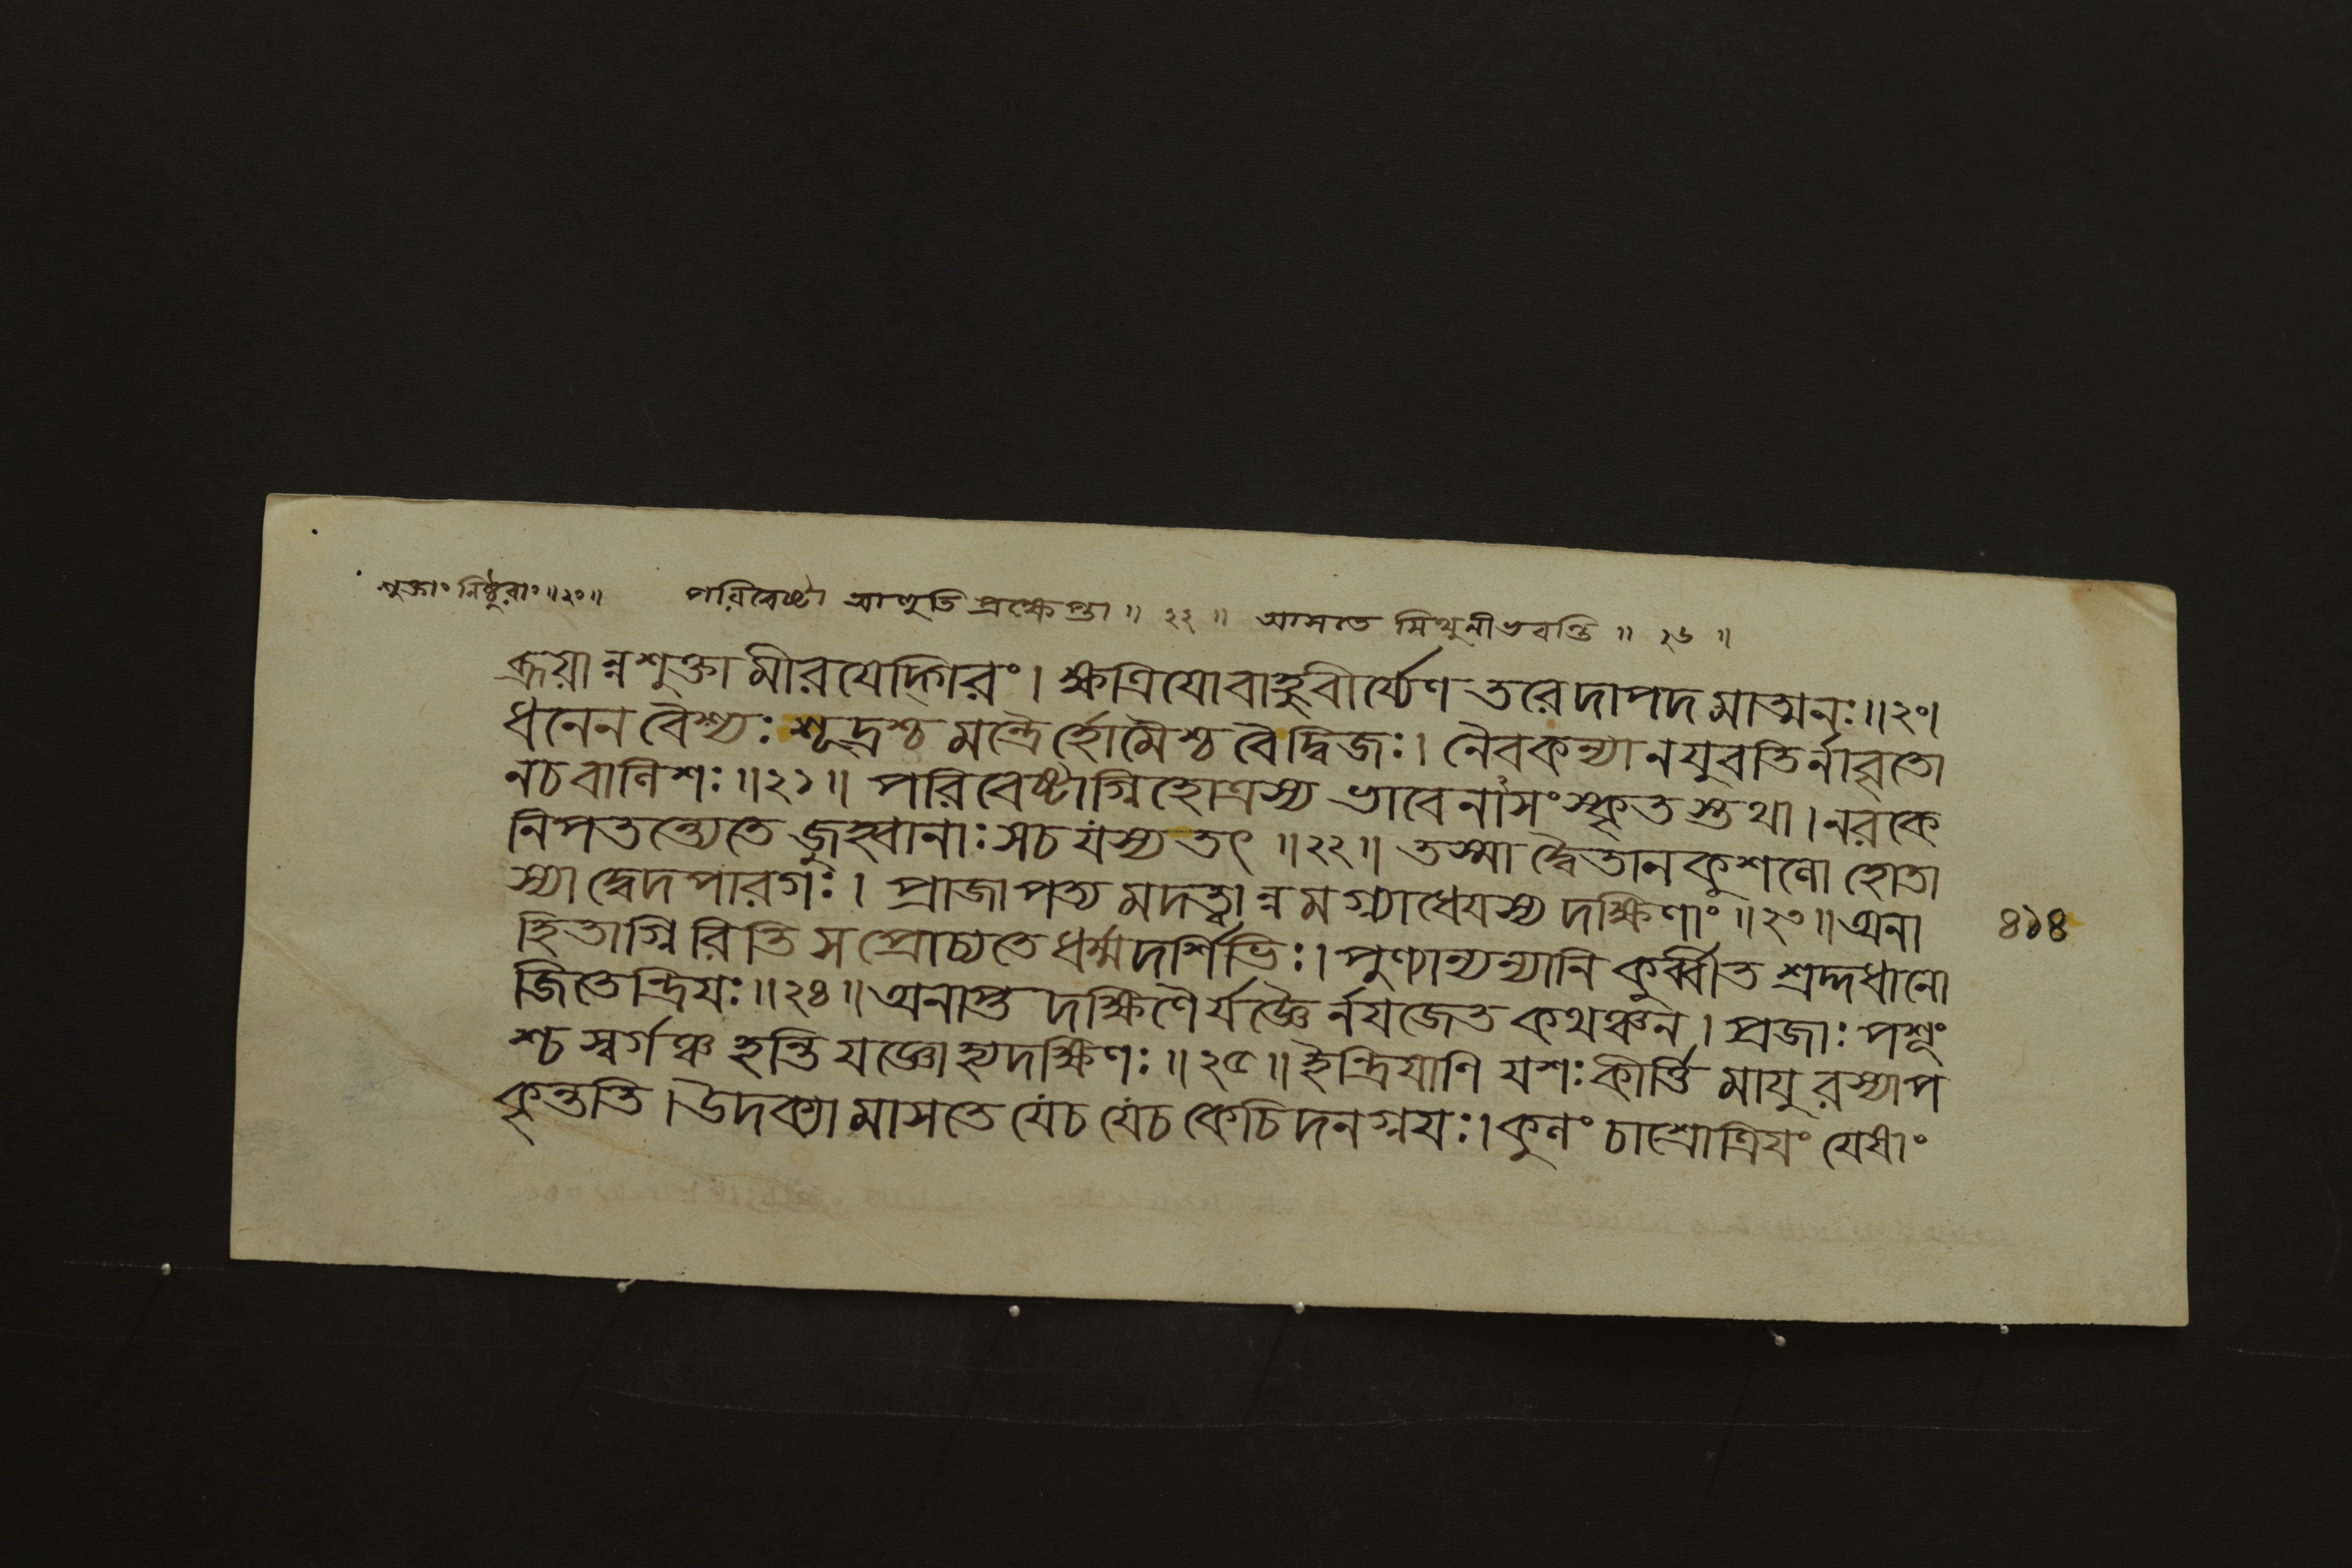 শুক্তাং নিষ্ঠুরাং॥২০॥ পরিবেষ্টা আহুতি প্রক্ষেপ্তা॥ ২২॥ আসতে মিথুনীভবন্তি॥ ২৬॥
ব্রূয়ান্নশুক্তামীরযেদ্গিরং। ক্ষত্রিযোবাহুবীর্য্যেণ তরেদাপদমাত্মনঃ॥২০।
ধনেন বৈশ্যঃ শূদ্রশ্চ মন্ত্রৈর্হোমৈশ্চ বৈদ্বিজঃ। নৈবকন্যানযুবতির্নাব্রতো
নচবালিশঃ॥২১॥ পরিবেষ্টাগ্নিহোত্রস্য ভাবেনাসংস্কৃতস্তথা। নরকে
নিপতন্ত্যেতে জুহ্বানাঃ সচ যস্য তৎ॥২২॥ তস্মাদ্বৈতানকুশলো হোতা
স্যাদ্বেদপারগঃ। প্রাজাপত্য মদত্ত্বান্ন মগ্ন্যাধেযস্য দক্ষিণাং॥২৩॥ অনা
হিতাগ্নিরিতি স প্রোচ্যতে ধর্ম্মদর্শিভিঃ। পুণ্যান্যন্যানি কুর্ব্বীত শ্রদ্দধানো
জিতেন্দ্রিযঃ॥২৪॥ অনাপ্ত দক্ষিণৈর্যজ্ঞৈর্নযজেত কথঞ্চন। প্রজাঃ পশূং
শ্চ স্বর্গঞ্চ হন্তি যজ্ঞোহ্যদক্ষিণঃ॥২৫॥ ইন্দ্রিযাণি যশঃ কীর্ত্তি মাযুরস্যাপ
কৃন্ততি। উদক্যা মাসতে যেচ যেচ কেচিদনগ্নযঃ। কুলং চাশ্রোত্রিযং যেষাং
৪১৪